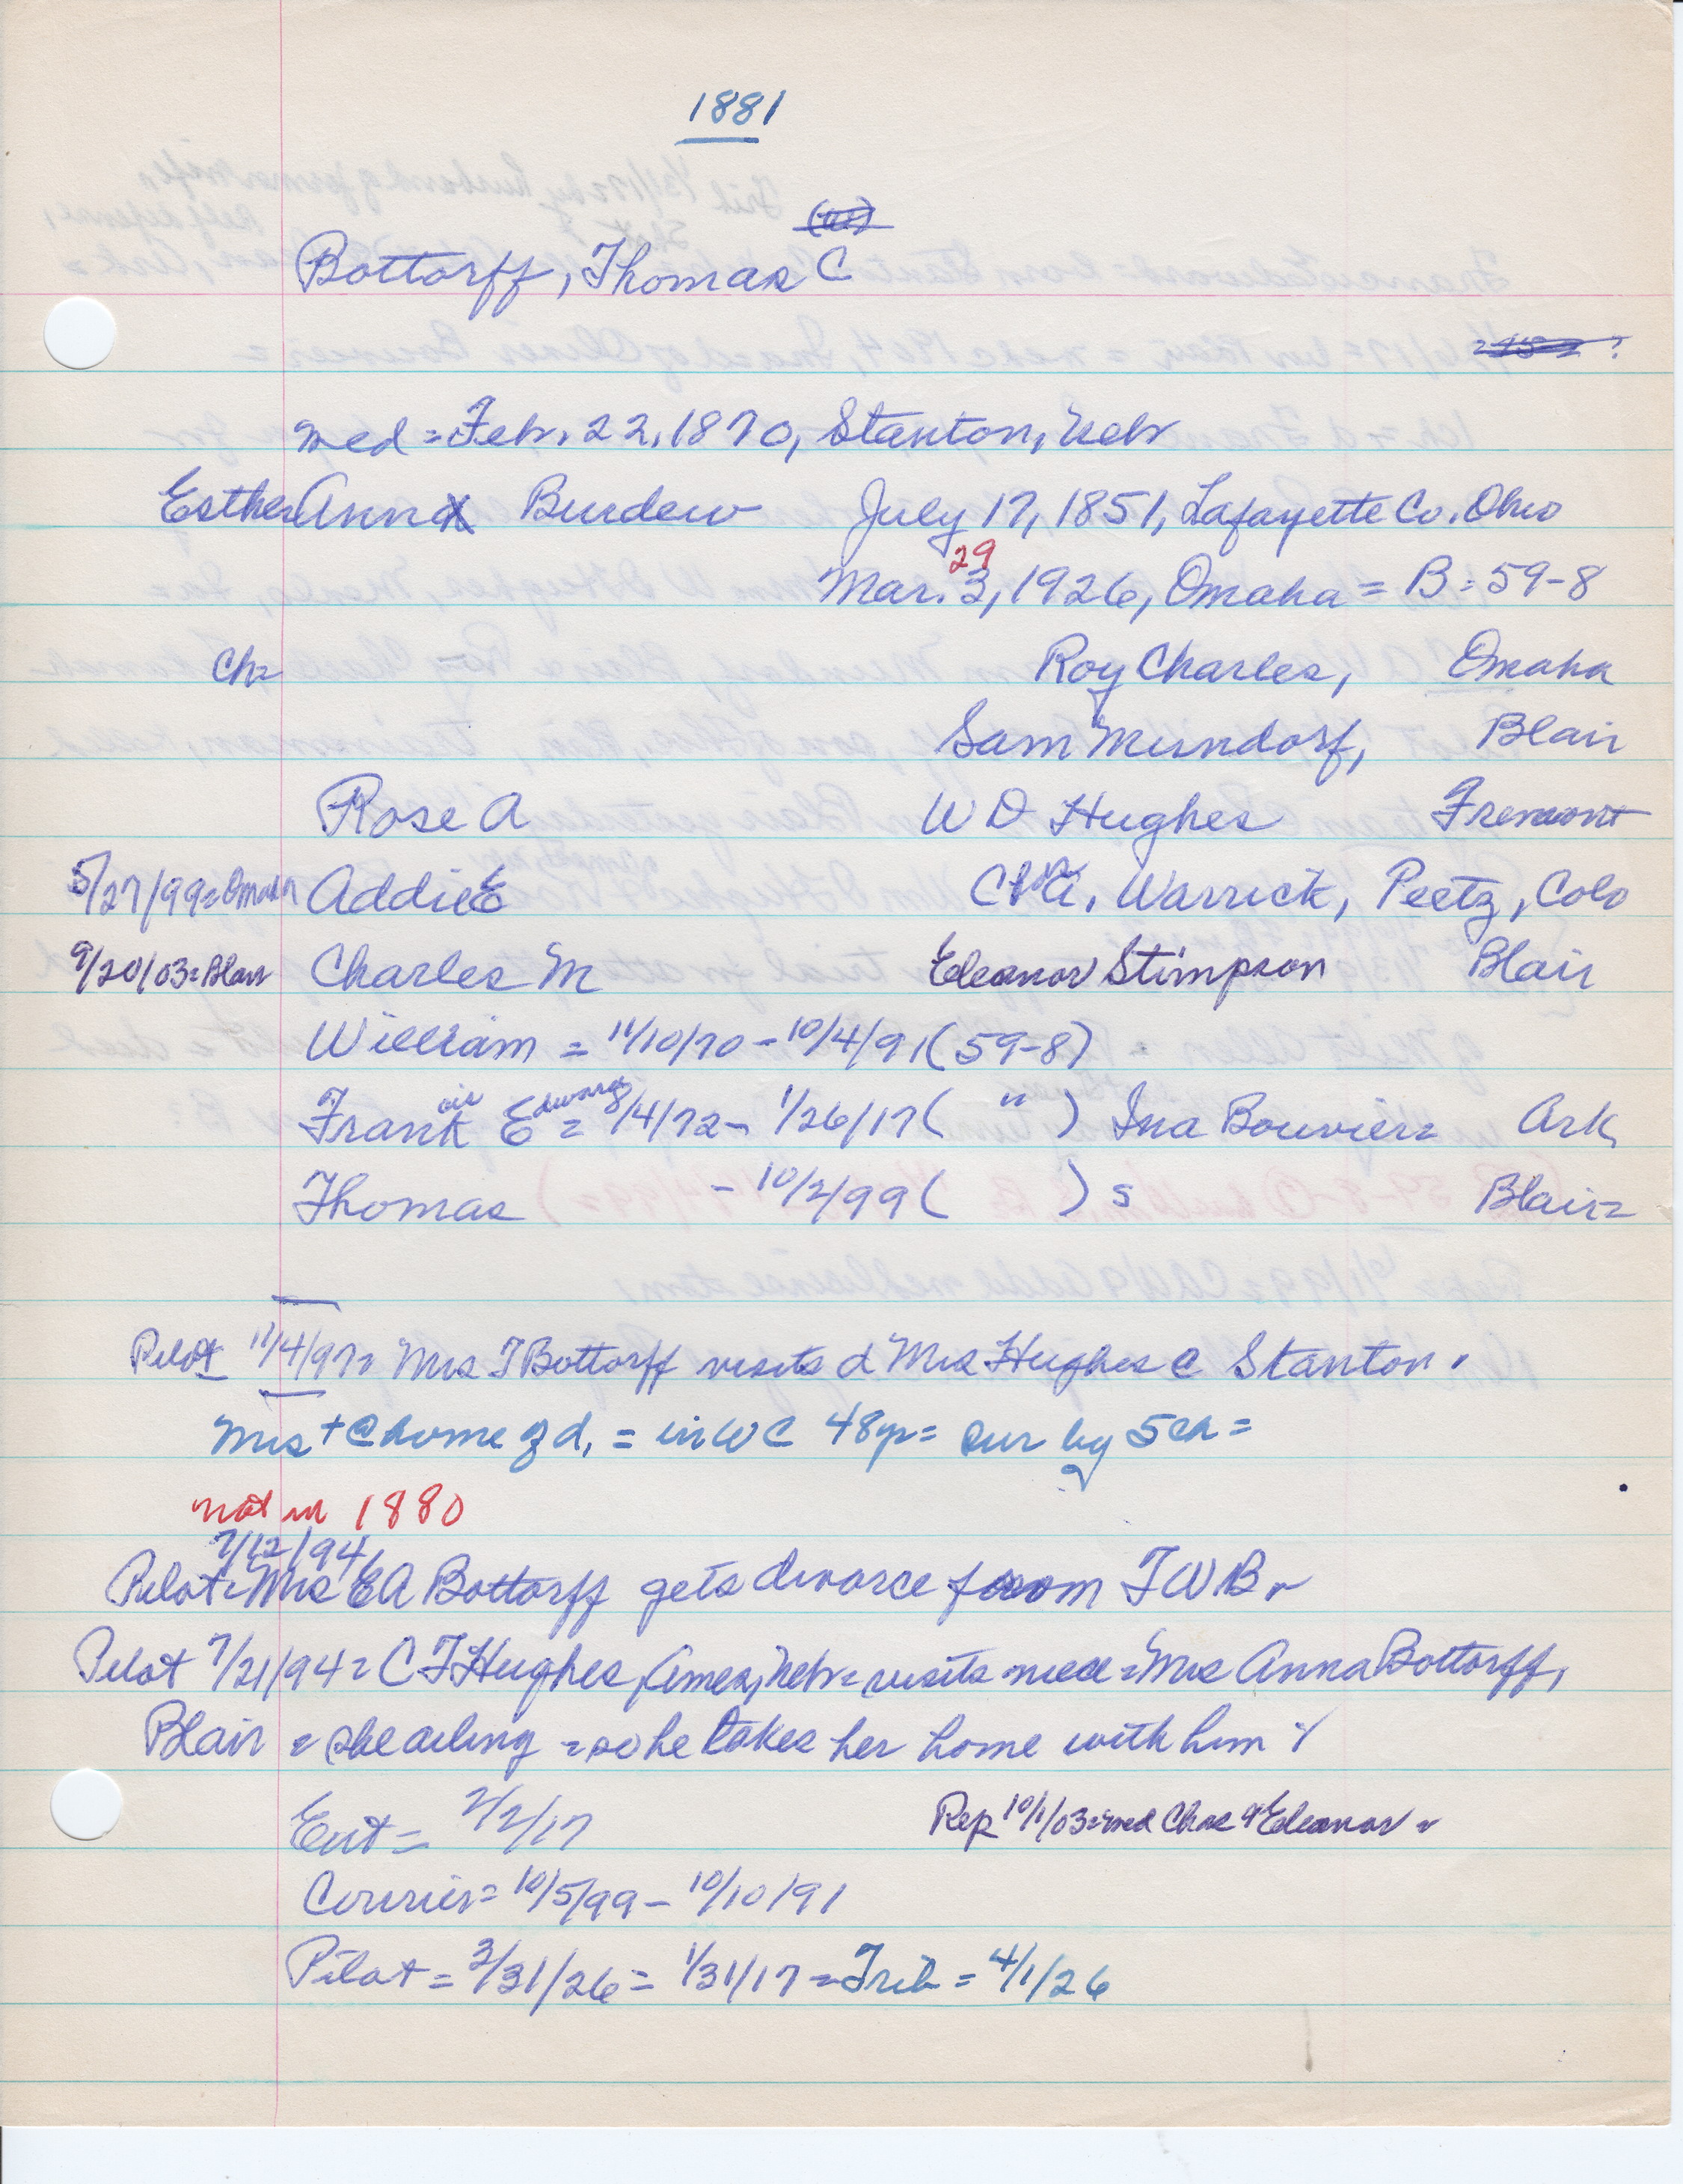 1881
Bottorff, Thomas C
?
med = Feb. 22, 1870, Stanton, Nebr
Esther Anna Burdew July 17, 1851, Lafayette Co. Ohio
29
Mar. 3, 1926, Omaha = B = 59-8
Ch= Roy Charles, Omaha
Sam Mundorf, Blair
Rose A W D Hughes Fremont
5/27/99=Omaha Addie E A. Warrick, Peetz, Colo
9/20/03=Blair Charles M Eleanor Stimpson Blair
William = 11/10/70 - 10/4/91 (59-8)
Frank Edward = 8/4/72 - 1/26/17 ( " ) Ina Bouvier= Ark.
Thomas - 10/2/99 ( ) s Blair=
Pilot 11/4/97= Mrs T Bottorff visits d Mrs Hughes @ Stanton.
Mrs + @ home of d. = in W C 48yr = sur by 5 ch =
not in 1880
7/12/94
Pilot= Mrs E A Bottorff gets divorce from T W B
Pilot 7/21/94= C F Hughes, Ames, Nebr= visits niece = Mrs Anna Bottorff,
Blair = she ailing = so he takes her home with him
Ent = 2/2/17 Rep 10/1/03=med Chas & Eleanor =
Courier= 10/5/99 - 10/10/91
Pilot = 3/31/26 = 1/31/17 = Trib = 4/1/26